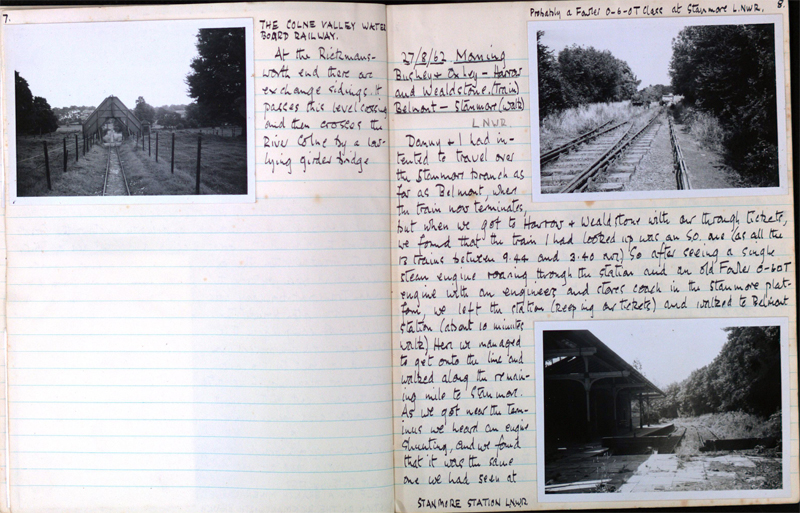 7.
THE COLNE VALLEY WATER
BOARD RAILWAY.
At the Rickmans-
worth end there are
exchange sidings. It
passes this level crossing
and then crosses the
River Colne by a low-
lying girder bridge
Probably a Fowler 0-6-0T Class at Stanmore L.N.W.R.
8.
27/8/62 Morning
Bushey & Oxhey - Harrow
and Wealdstone (train)
Belmont - Stanmore (walk)
LNWR
Danny & I had in-
tented to travel over
the Stanmore branch as
far as Belmont, where
the train now terminates,
but when we got to Harrow & Wealdstone with our through tickets,
we found that the train I had looked up was an S.O. one (as all the
13 trains between 9.44 and 3.40 are) So after seeing a single
steam engine roaring through the station and an old Fowler 0-6-0T
engine with an engineers and stores coach in the Stanmore plat-
form, we left the station (keeping our tickets) and walked to Belmont
station (about 10 minutes
walk) Here we managed
to get onto the line and
walked along the remain-
ing mile to Stanmore.
As we got near the term-
inus we heard an engine
shunting, and we found
that it was the same
one we had seen at
STANMORE STATION LNWR